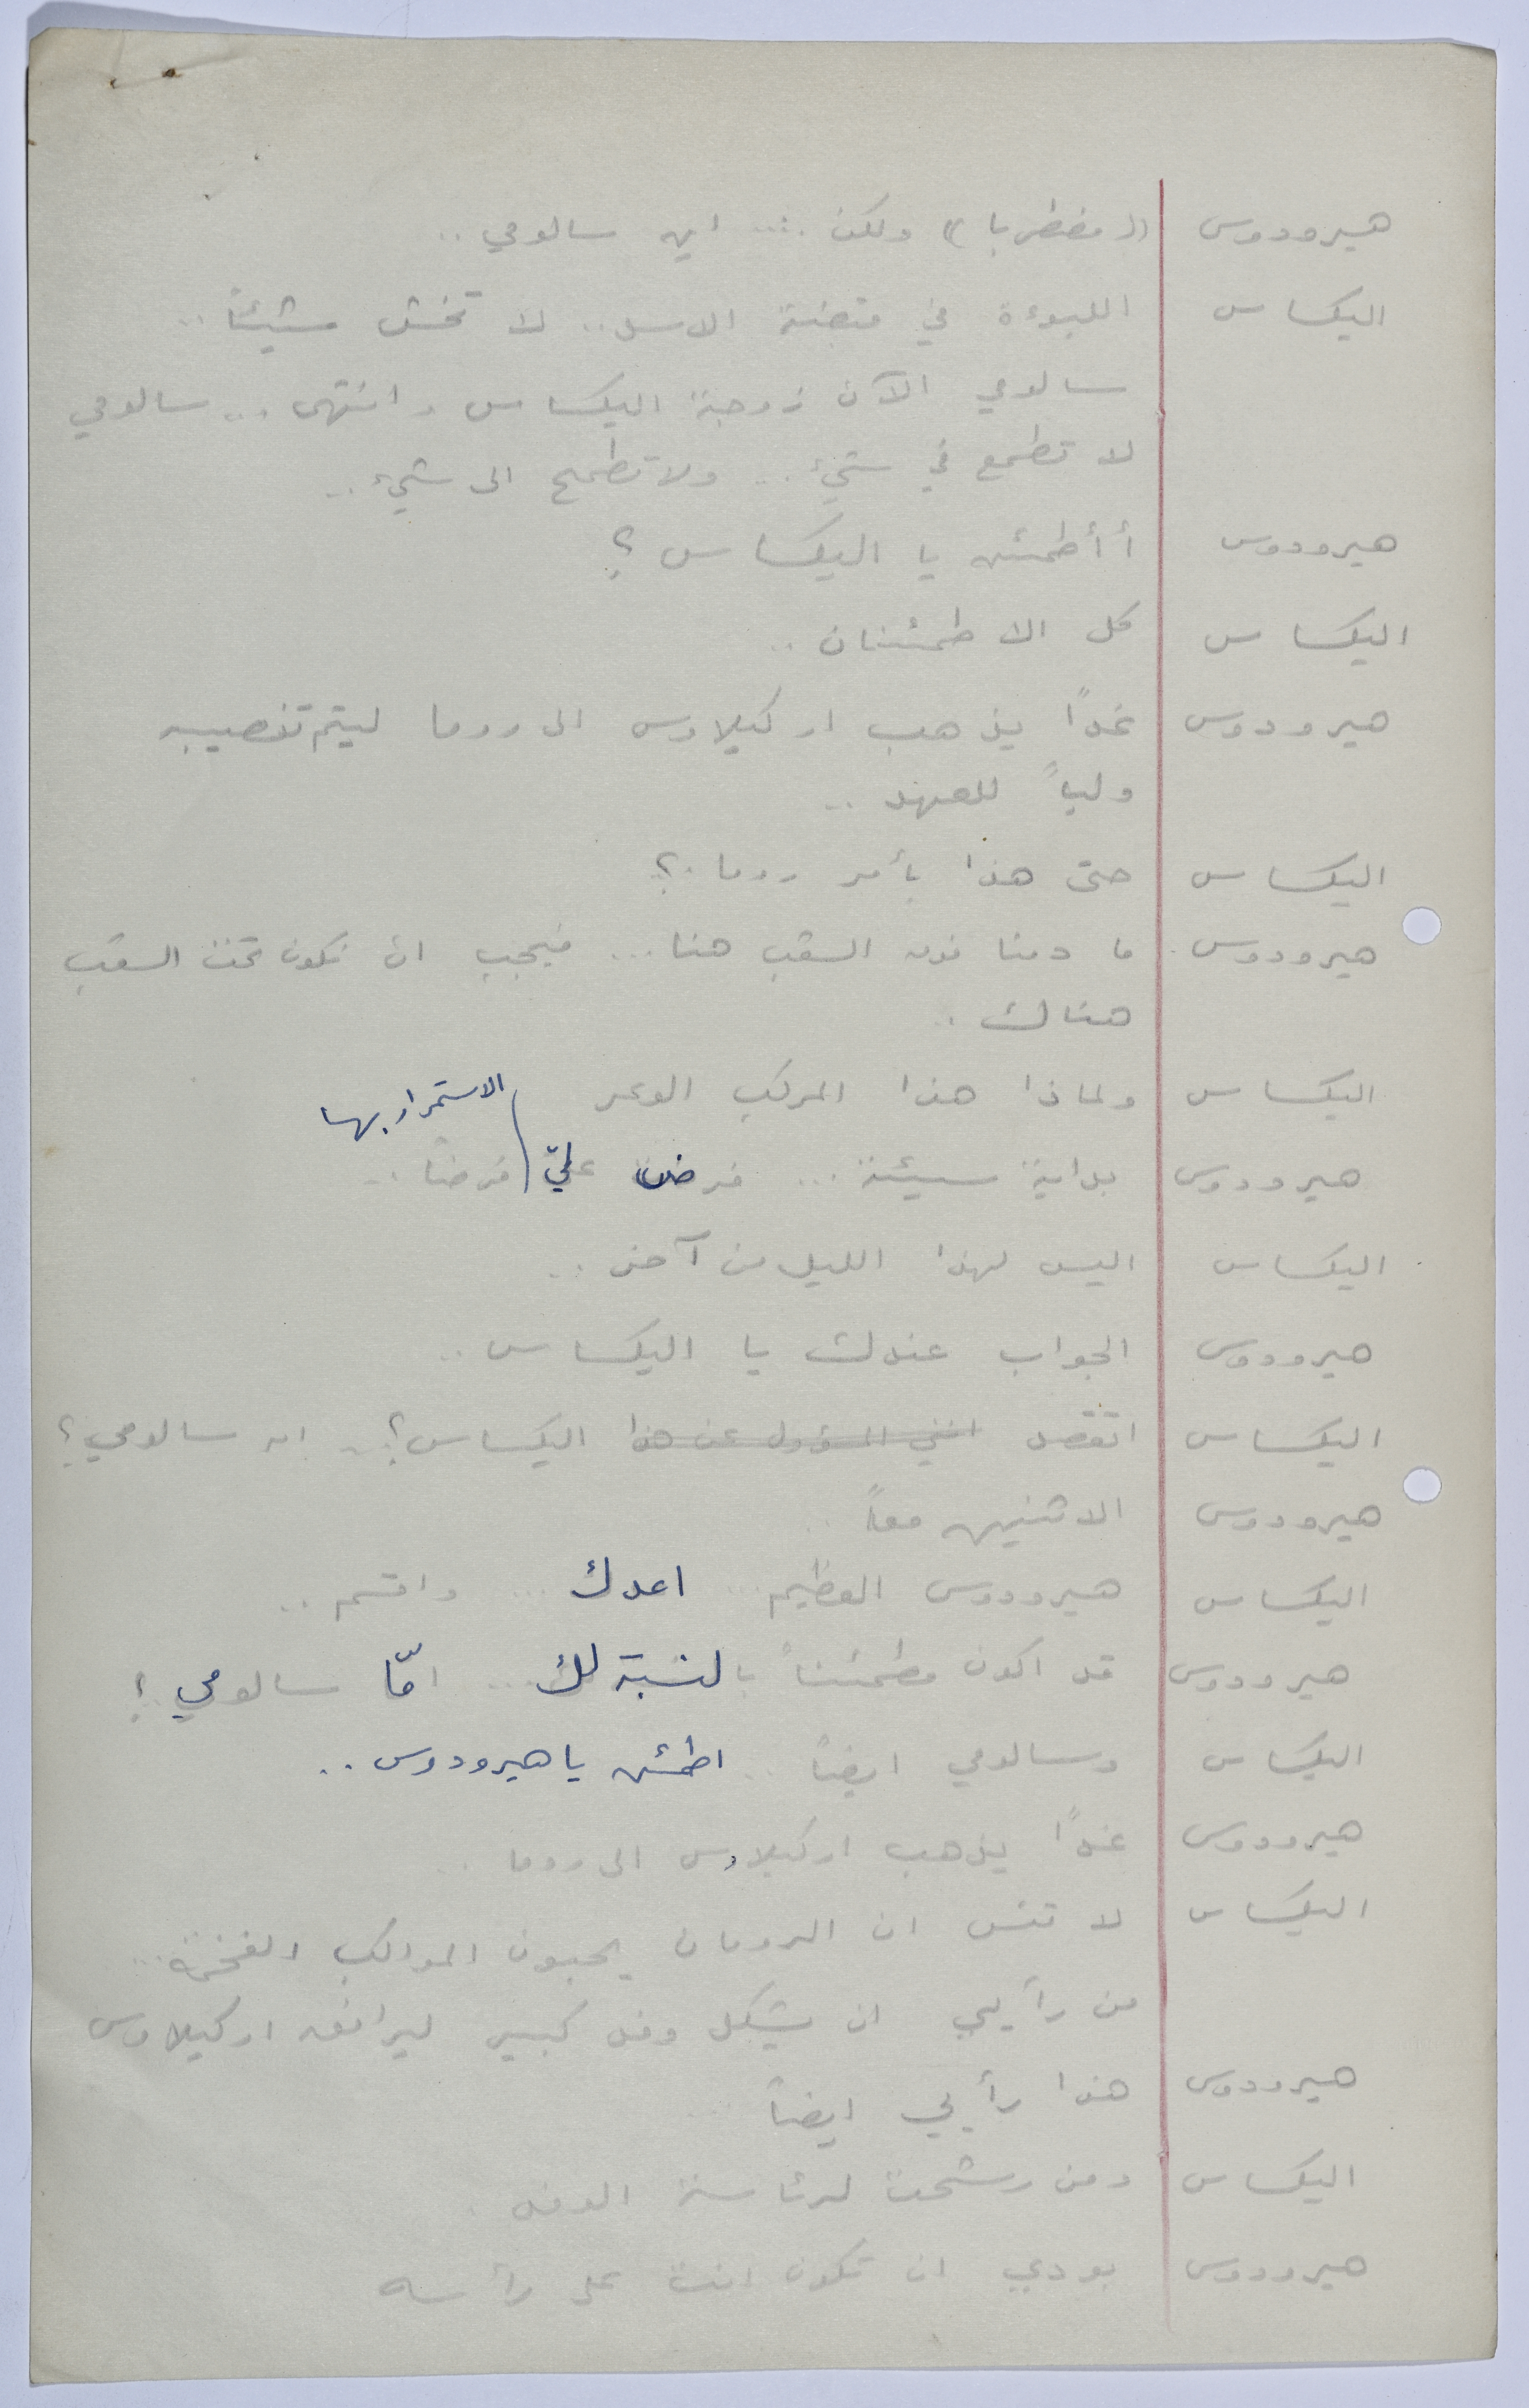 هيرودوس (( مضطربا )) ولكن .... اين سالومي ..
اليكساس اللبوءة في قبضة الاسد .. لا تخش شيئاً ..
سالومي الآن زوجة اليكساس وانتهى ... سالومي
لا تطمع في شيء ... ولا تطمح الى شيء ..
هيرودوس أأطمئن يا اليكساس ؟
اليكساس كل الاطمئنان ..
هيرودوس غداً يذهب اركيلاوس الى روما ليتم تنصيبه
ولياً للعهد ..
اليكساس حتى هذا بأمر روما .؟
هيرودوس ما دمنا فوق الشعب هنا ... فيجب ان نكون تحت الشعب
هناك ..
اليكساس ولماذا هذا المركب الوعر
الاستمرار بها
هيرودوس بداية سيئة ... فرض عليّ فرضاً ..
اليكساس اليس لهذا الليل من آخر ..
هيرودوس الجواب عندك يا اليكساس ..
اليكساس اتقصد انني المسؤول عن هذا اليكساس ؟ .. ام سالومي ؟
هيرودوس الاثنين معاً ..
اليكساس هيرودوس العظيم ... اعدك ... واقسم ..
هيرودوس قد اكون مطمئناً بالنسبة لك ... امّا سالومي ؟!
اليكساس وسالومي ايضاً .. اطمئن يا هيرودوس ..
هيرودوس غداً يذهب اركيلاوس الى روما ..
اليكساس لا تنس ان الرومان يحبون المواكب الفخمة ...
من رأيي ان يشكل وفد كبير ليرافق اركيلاوس
هيرودوس هذا رأيي ايضاً ..
اليكساس ومن رشحت لرئاسة الوفد .
هيرودوس بودي ان تكون انت على رأسه